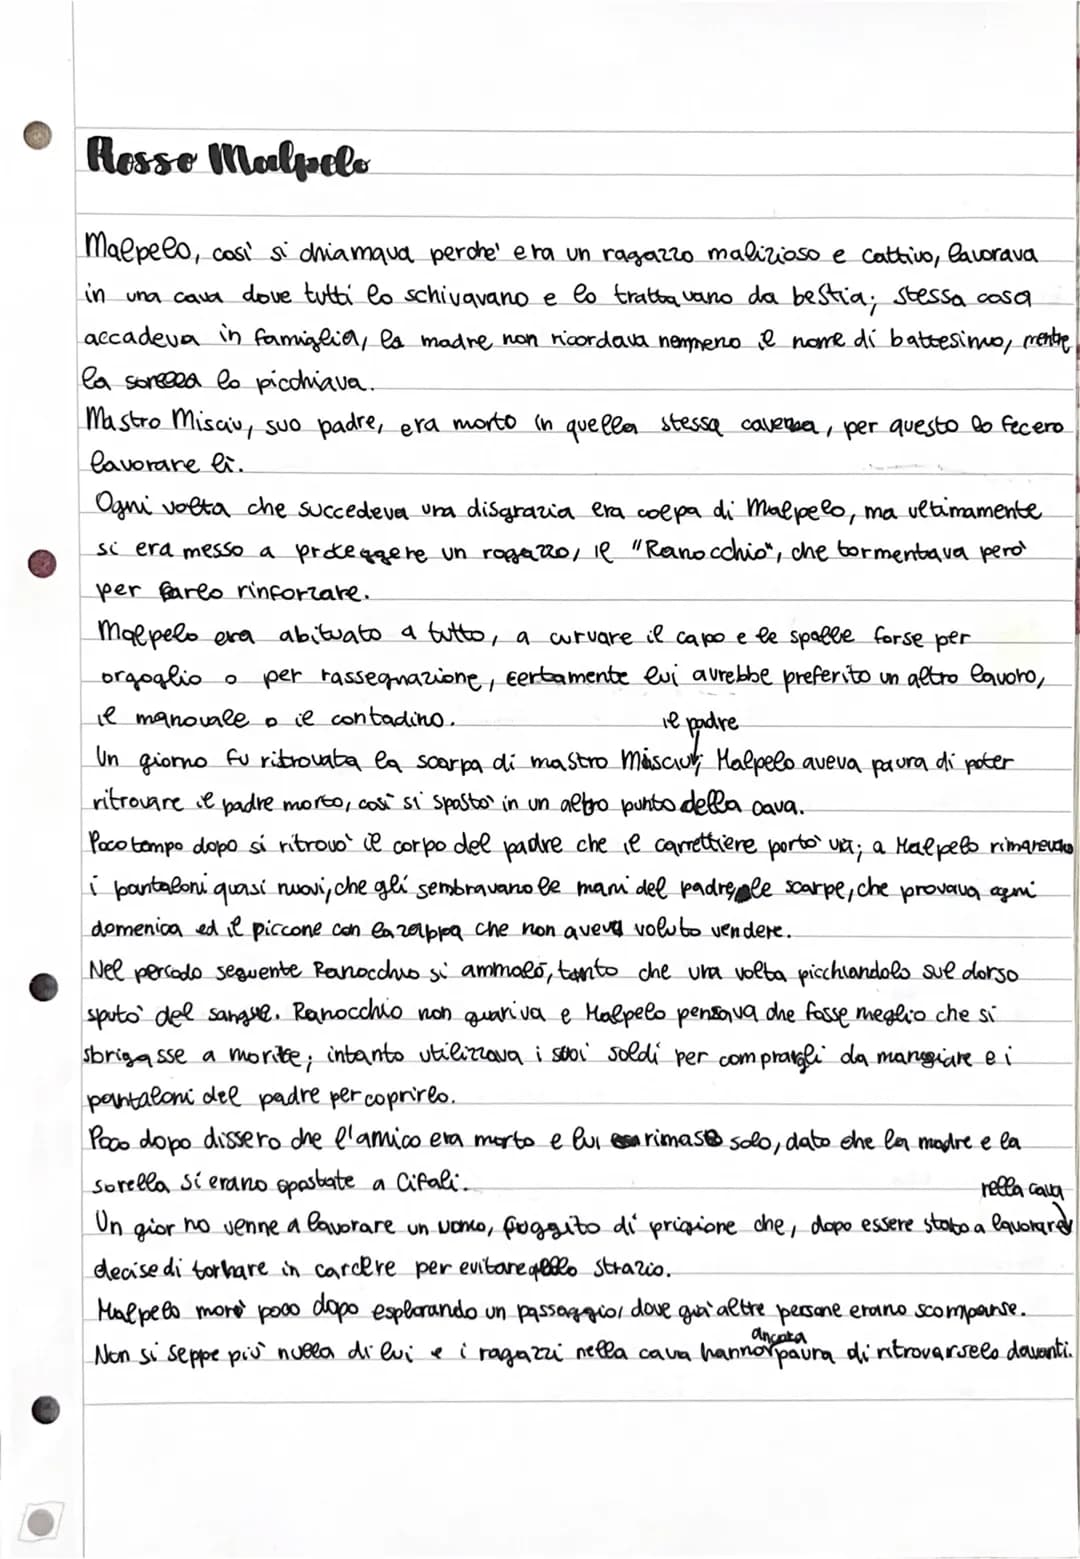 Rosso Malpelo
Malpelo, così si chiamava perche' era un ragazzo malizioso e cattivo, lavorava
in una cava dove tutti lo schivavano e lo trattavano da bestia; stessa cosa
accadeva in famiglia, la madre non ricordava nemmeno il nome di battesimo, mentre
la sorella lo picchiava.
Mastro Misciu, suo padre, era morto in quella stessa caverna, per questo lo fecero
lavorare lì.
Ogni volta che succedeva una disgrazia era colpa di Malpelo, ma ultimamente
si era messo a proteggere un ragazzo, il "Ranocchio", che tormentava però
per farlo rinforzare.
Malpelo era abituato a tutto, a curvare il capo e le spalle forse per
orgoglio o per rassegnazione, certamente lui avrebbe preferito un altro lavoro,
il manovale o il contadino.
il padre
Un giorno fu ritrovata la scarpa di mastro Misciu; Malpelo aveva paura di poter
ritrovare il padre morto, così si spostò in un altro punto della cava.
Poco tempo dopo si ritrovò il corpo del padre che il carrettiere portò via; a Malpelo rimarevano
i pantaloni quasi nuovi, che gli sembravano le mani del padre, le scarpe, che provava ogni
domenica ed il piccone con la zappa che non aveva voluto vendere.
Nel periodo seguente Ranocchio si ammalò, tanto che una volta picchiandolo sul dorso
sputò del sangue. Ranocchio non guariva e Malpelo pensava che fosse meglio che si
sbrigasse a morire; intanto utilizzava i suoi soldi per comprargli da mangiare e i
pantaloni del padre per coprirlo.
Poco dopo dissero che l'amico era morto e lui rimase solo, dato che la madre e la
sorella si erano spostate a Cifali.
nella cava
Un giorno venne a lavorare un uomo, fuggito di prigione che, dopo essere stato a lavorare
decise di tornare in carcere per evitare quello strazio.
Malpelo morì poco dopo esplorando un passaggio, dove già altre persone erano scomparse.
ancora
Non si seppe più nulla di lui e i ragazzi nella cava hanno paura di ritrovarselo davanti.